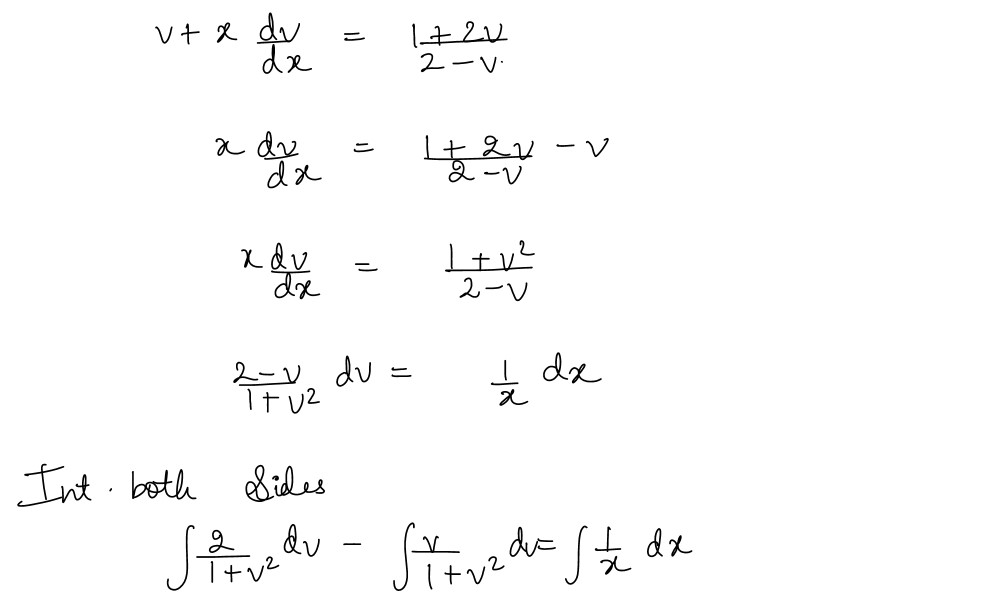 v + x dv/dx = (1 + 2v)/(2 − v)
x dv/dx = (1 + 2v)/(2 − v) − v
x dv/dx = (1 + v²)/(2 − v)
(2 − v)/(1 + v²) dv = 1/x dx
Int. both Sides
∫ 2/(1 + v²) dv − ∫ v/(1 + v²) dv = ∫ 1/x dx